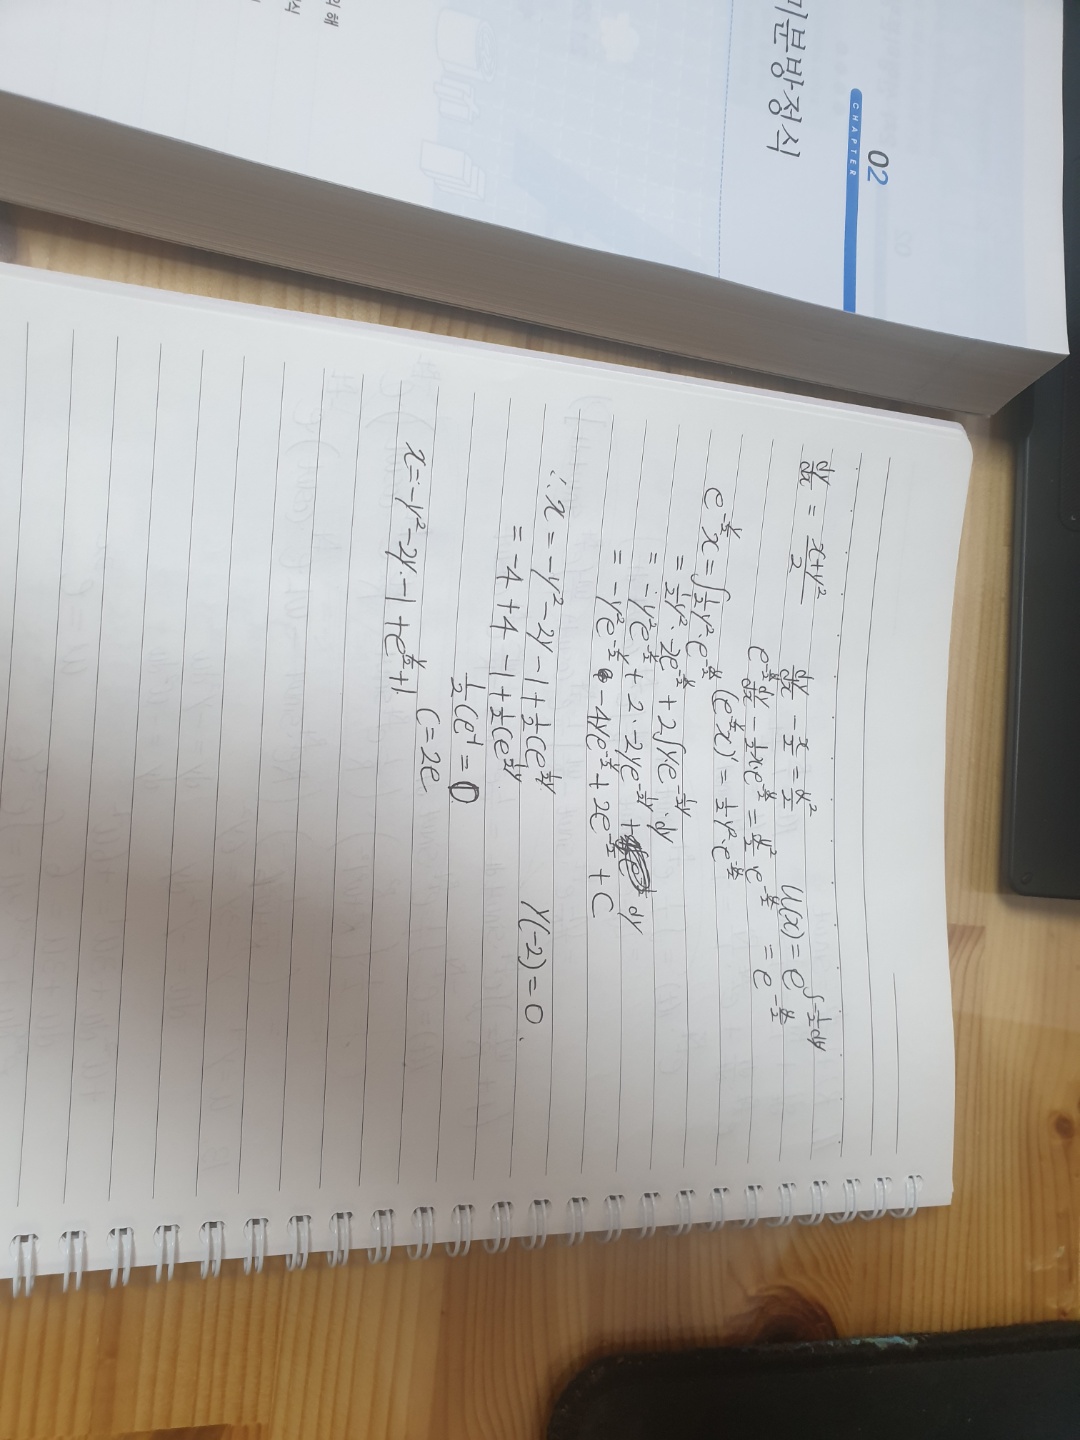 02
CHAPTER
미분방정식
의 해
식
dy/dx = (x+y²)/2
dy/dx - x/2 = y²/2   u(x) = e^{∫-1/2 dy}
e^{-y/2} dy/dx - 1/2 x e^{-y/2} = y²/2 · e^{-y/2}   = e^{-y/2}
(e^{-y/2} x)' = 1/2 y² · e^{-y/2}
e^{-y/2} x = ∫ 1/2 y² · e^{-y/2}
= 1/2 y² · 2e^{-y/2} + 2∫y · e^{-1/2 y} dy
= -y² e^{-y/2} + 2 · -2y e^{-1/2 y} + dy
= -y² e^{-y/2} - 4y e^{-y/2} + 2e^{-y/2} + C
∴ x = -y² - 2y - 1 + 1/2 C e^{1/2 y}   y(-2) = 0.
= -4 + 4 - 1 + 1/2 C e^{1/2 y}
1/2 C e^{-1} = 0
C = 2e
x = -y² - 2y - 1 + e^{y/2} + 1